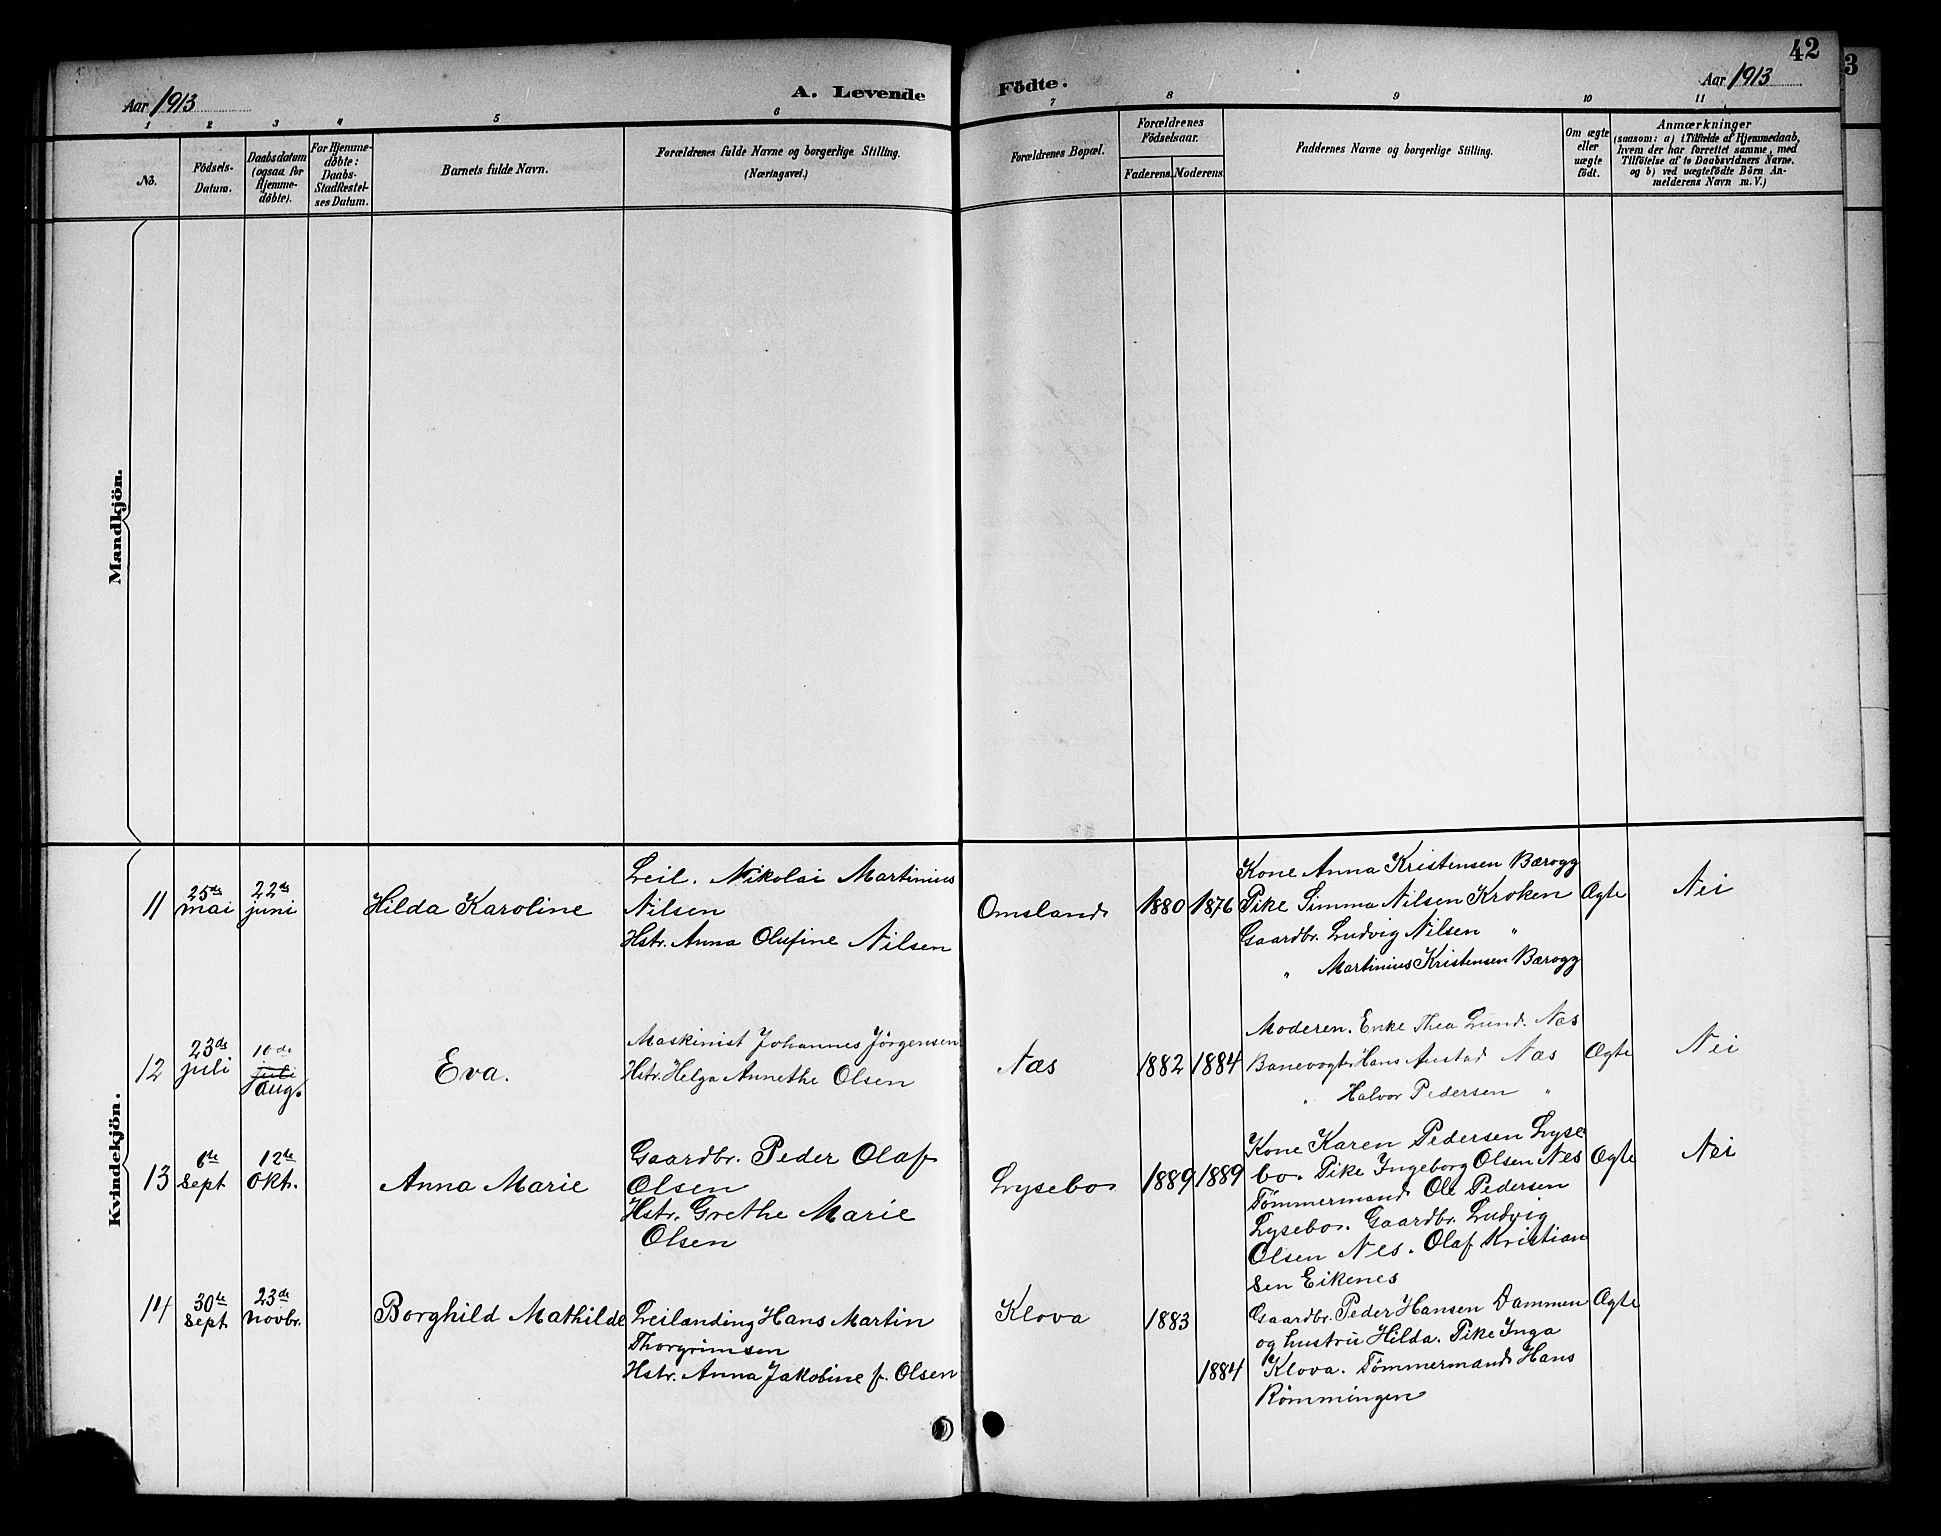 42
3
Aar 1913
A. Levende
Födte.
Aar 1913
1 2 3 4 5 6 7 8 9 10 11
No.
Födsels-
Datum.
Daabsdatum
(ogsaa for
Hjemme-
døbte).
For Hjemme-
døbte:
Daabs-
Stadfæstel-
ses Datum.
Barnets fulde Navn.
Forældrenes fulde Navne og borgerlige Stilling.
(Næringsvei.)
Forældrenes Bopæl.
Forældrenes
Födselsaar.
Faderens.
Moderens.
Faddernes Navne og borgerlige Stilling.
Om ægte
eller
uægte
födt.
Anmærkninger
(saasom: a) i Tilfælde af Hjemmedaab,
hvem der har forrettet samme, med
Tilföielse af to Daabsvidners Navne.
og b) ved uægtefödte Börn An-
melderens Navn m. V.)
Mandkjön.
Kvindekjön.
11
25de
mai
22de
juni
Hilda Karoline
Leil. Nikolai Martinius
Nilsen
Hstr. Anna Olufine Nilsen
Omsland
1880
1876
Kone Anna Kristensen Bærogg
Pike Simma Nilsen Kroken
Gaardbr. Ludvig Nilsen "
" Martinius Kristensen Bærogg
Ægte
Nei
12
23de
juli
10de
juli
aug.
Eva.
Maskinist Johannes Jørgensen
Hstr. Helga Annethe Olsen
Næs
1882
1884
Moderen. Enke Thea Lund. Næs
Banevogter Hans Austad Næs
" Halvor Pedersen "
Ægte
Nei
13
6te
Sept
12te
Okt.
Anna Marie
Gaardbr. Peder Olaf
Olsen
Hstr. Grethe Marie
Olsen
Lysebo
1889
1889
Kone Karen Pedersen Lyse
bo. Pike Ingeborg Olsen Nes
Tömmermand Ole Pedersen
Lysebo. Gaardbr. Ludvig
Olsen Nes. Olaf Kristian
sen Eikenes
Ægte
Nei
14
30te
Sept
23de
Novbr.
Borghild Mathilde
Leilænding Hans Martin
Thorgrimsen
Hstr. Anna Jakobine f. Olsen
Klova
1883
1884
Gaardbr. Peder Hansen Dammen
og hustru Hilda. Pike Inga
Klova. Tömmermand Hans
Römmingen
Ægte